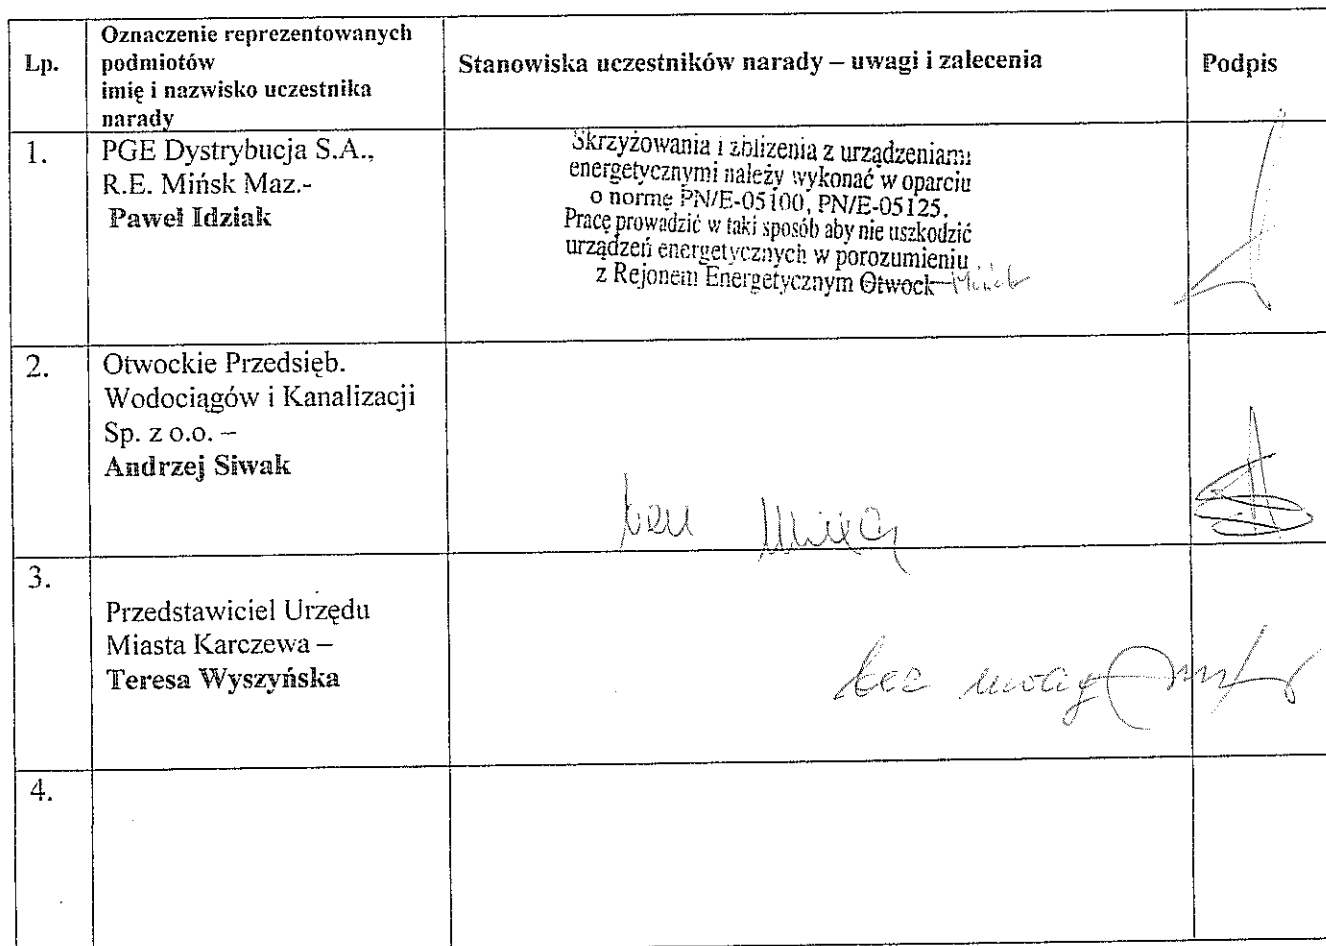 Lp.
Oznaczenie reprezentowanych
podmiotów
imię i nazwisko uczestnika
narady
Stanowiska uczestników narady – uwagi i zalecenia
Podpis
1.
PGE Dystrybucja S.A.,
R.E. Mińsk Maz.-
Paweł Idziak
Skrzyżowania i zbliżenia z urządzeniami
energetycznymi należy wykonać w oparciu
o normę PN/E-05100, PN/E-05125.
Pracę prowadzić w taki sposób aby nie uszkodzić
urządzeń energetycznych w porozumieniu
z Rejonem Energetycznym Otwock Mińsk
2.
Otwockie Przedsięb.
Wodociągów i Kanalizacji
Sp. z o.o. –
Andrzej Siwak
bez uwag
3.
Przedstawiciel Urzędu
Miasta Karczewa –
Teresa Wyszyńska
bez uwag
4.